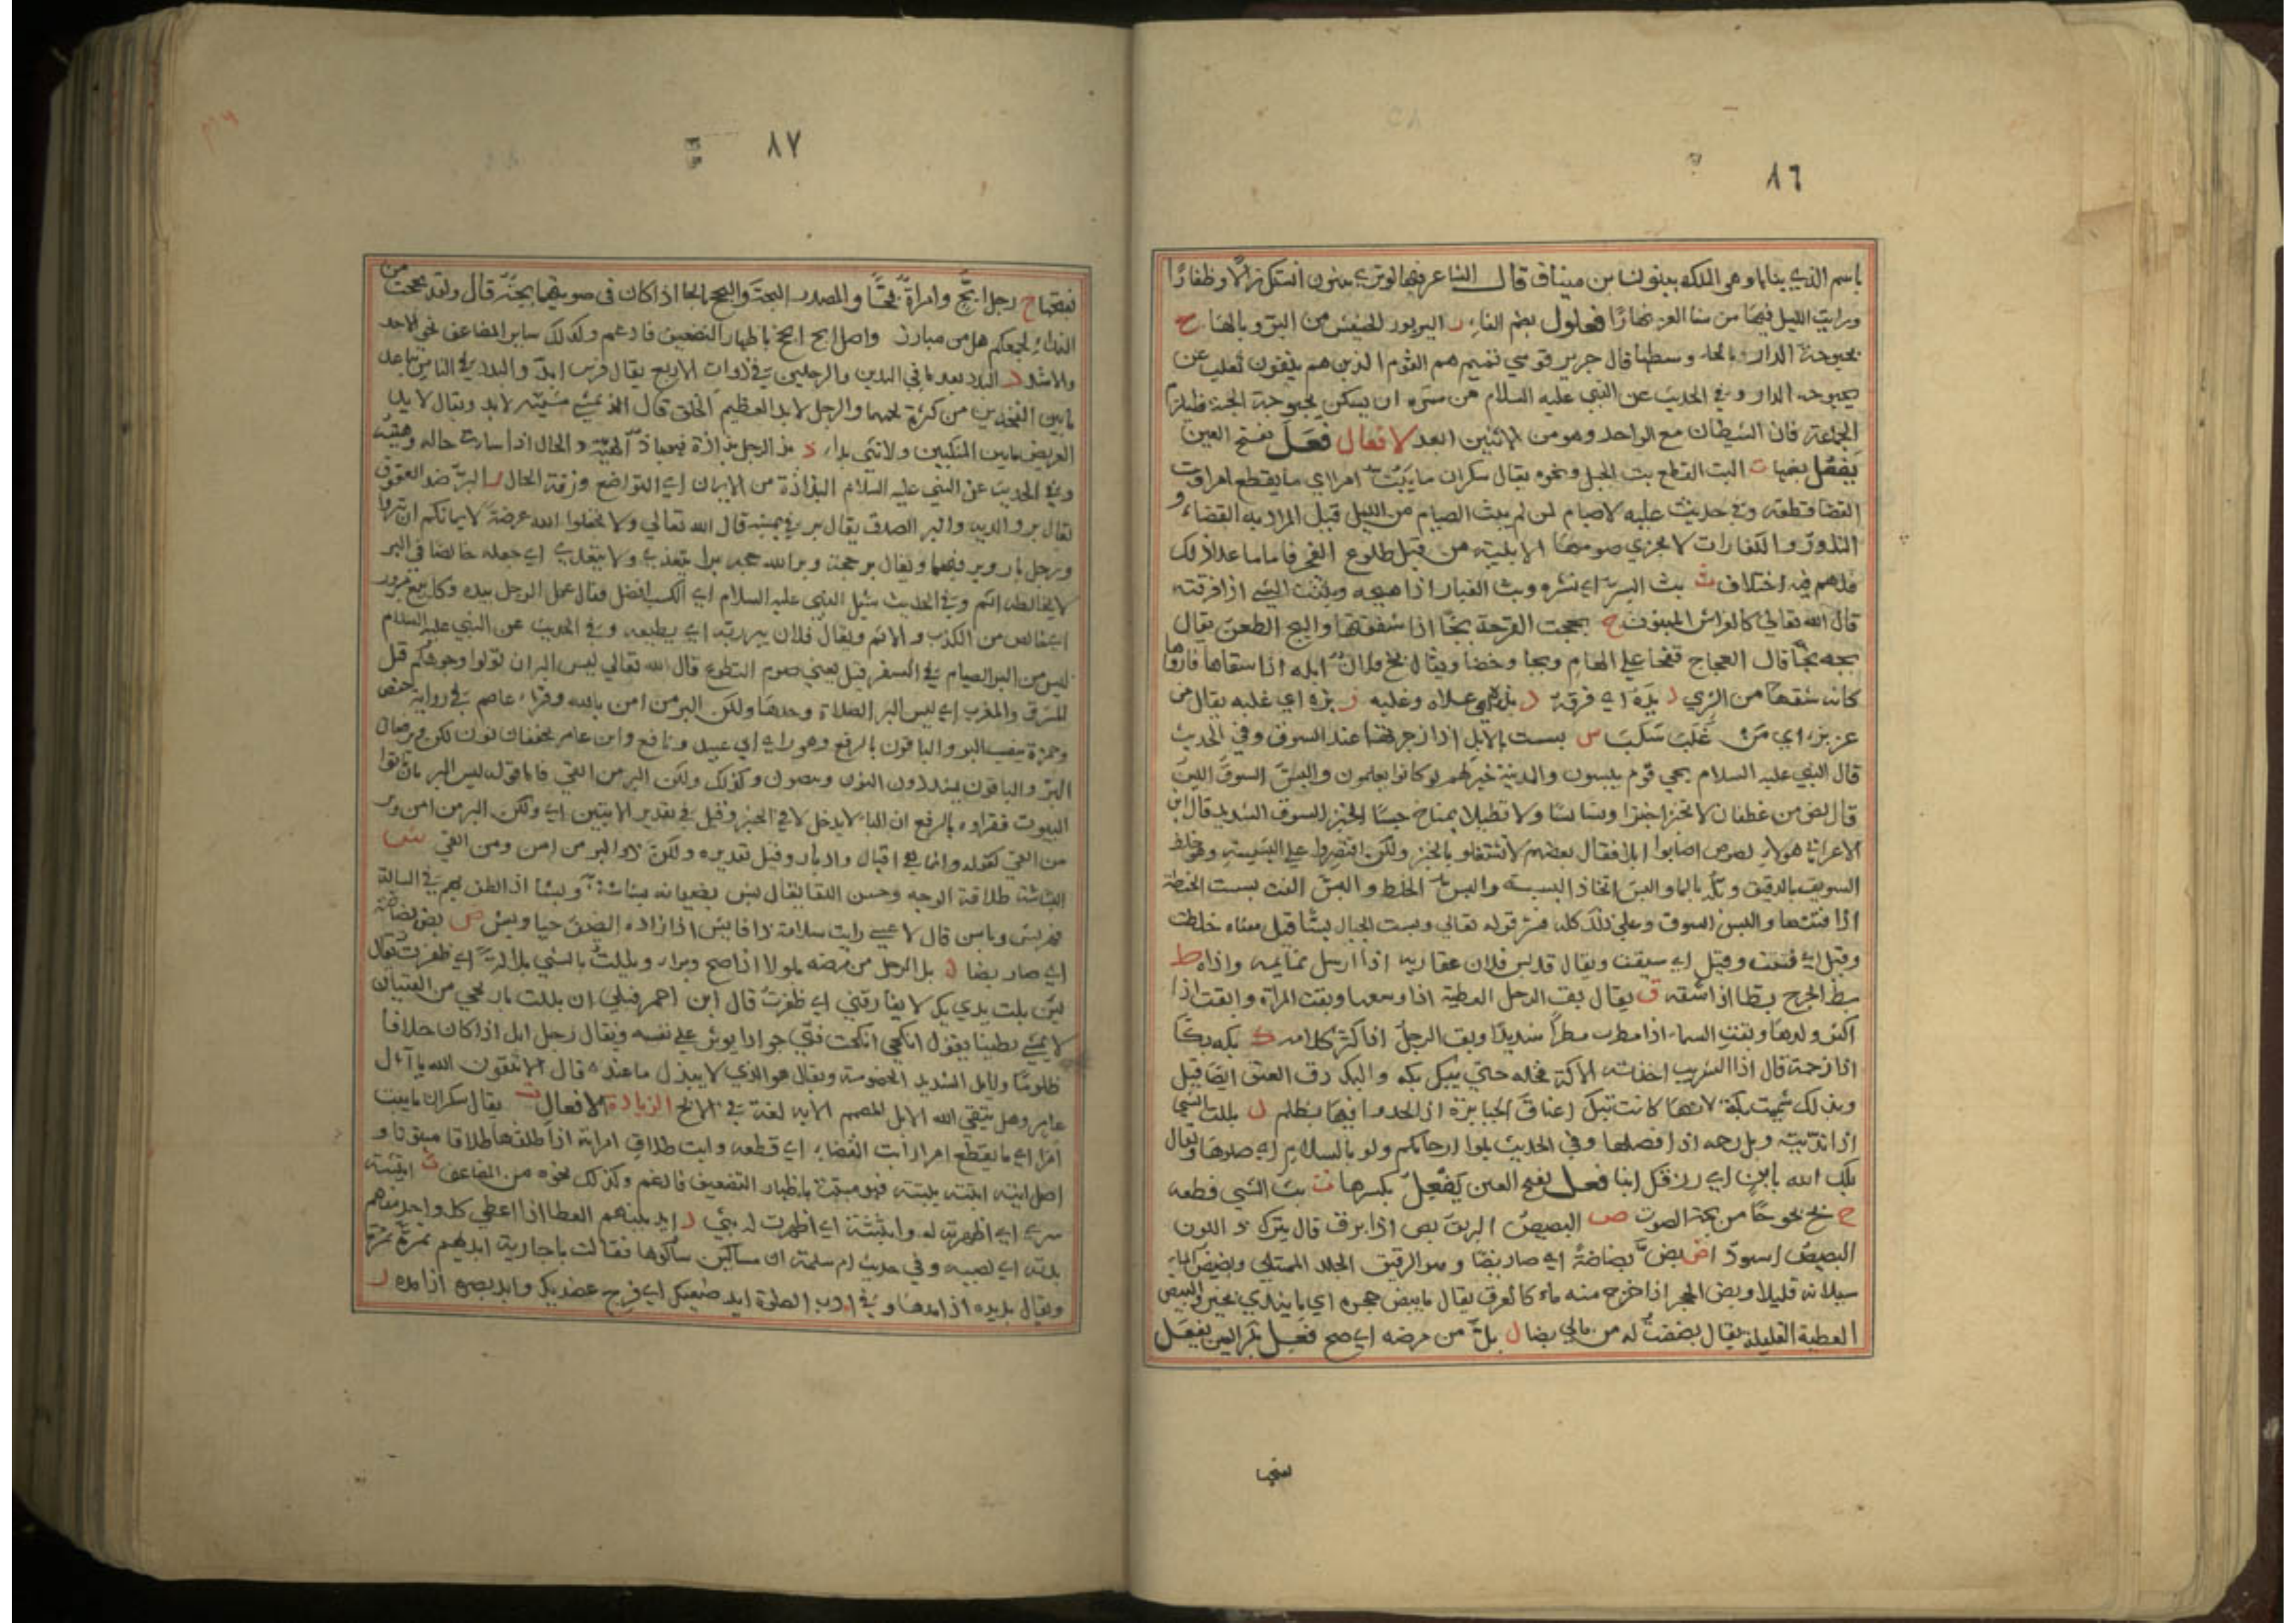 ٨٦
باسم الذي بناها وهو الملك بينون بن ميناف قال الشاعر فيها لو ترى بينون انتكراﻻ وظفارًا
ورايت الليل فيها من سنا العز نهارًا فعلول بضم الفاء ر البربور للجشيش من البرّ وبالهاء ح
بحبوحة الدار بالحاء وسطها قال جرير قومي تميم هم القوم الذين هم ينفون تغلب عن
بحبوحه الدار وفي الحديث عن النبي عليه السلام من سرّه ان يسكن بحبوحة الجنة فليلزم
الجماعة فان الشيطان مع الواحد وهو من الاثنين ابعد الافعال فعَلَ بفتح العين
يَفعُل بضمها ت البت القطع بت الحبل ونحوه يقال سكران ما يَبُتّ امرا اي ما يقطع امرا وبت
القضا قطعه وفي حديث عليه لا صيام لمن لم يبت الصيام من الليل قيل المراد به القضاء و
النذور والكفارات لا يجزي صومها الا بنية من قبل طلوع الفجر فاما ما عدا ذلك
فلهم فيه اختلاف ث بث السرّ اي نشره وبث الغبار اذا هيجه وبثثت الشي اذا فرقته
قال الله تعالى كالفراش المبثوث ج بججت القرحة بجّا اذا شققتها والبج الطعن يقال
بجه بجّا قال العجاج قفخا على الهام وبجا وخضا ويقال بج فلان ابله اذا سقاها فارواها
كانه شقها من الري د بدّه اي فرقه ذ بذه اي علاه وغلبه ز بزه اي غلبه يقال من
عزّ بزّ اي مَن غَلَبَ سَلَبَ س بسست بالابل اذا زجرتها عند السوق وفي الحديث
قال النبي عليه السلام يجي قوم يبسون والمدينة خير لهم لو كانوا يعلمون والبسّ السوق اللين
قال لص من غطفان لا تخبزا خبزا وبسّا بسّا ولا تطيلا بمناخ حبسًا الخبز السوق الشديد قال ابن
الاعرابي هولاء لصوص اصابوا ابلا فقال بعضهم لا تشتغلو بالخبز ولكن اقتصروا على البسيسه وهي خلط
السويق بالدقيق وبلّه بالماء والبس اتخاذ البسيسه والبسّ الخلط والبسّ الفت بسست الحنطة
اذا فتتها والبس السوق وعلى ذلك كله فسّر قوله تعالى وبست الجبال بسًّا قيل معناه خلطت
وقيل اي فتتت وقيل اي سيقت ويقال قد بس فلان عقاربه اذا ارسل نمايمه واذاه ط
بطّ الجرح بطّا اذا شقه ق يقال بقّ الرجل العطية اذا وسعها وبقت المراة وابقت اذا
اكثر ولدها وبقت السماء اذا مطرت مطراً شديدًا وبق الرجلُ اذا كثر كلامه ك بكه بكّا
اذا زحمه قال اذا الشريب اخذته الاكّة فخله حتى يبك بكه والبك دق العنق ايضا قيل
وبذلك سُميت بكة لانها كانت تبك اعناق الجبابرة اذا الحدوا فيها بظلم ل بللت الشي
اذا ندّيته وبل رحمه اذا افضلها وفي الحديث بلوا ارحامكم ولو بالسلام اي صلوها ويقال
بلّك الله بابنٍ اي رزقك ابنا فعل بفتح العين يَفعِل بكسرها ت بتّ الشي قطعه
ح بح بحوحًا من بحة الصوت ص البصيصُ البريق بص اذا برق قال يترك ذو اللون
البصيص اسودّا ض بضّ بضاضةً اي صار بضّا وهو الرقيق الجلد الممتلي وبضيض الماء
سيلانه قليلا وبض الحجر اذا خرج منه ماء كالعرق يقال ما يبض حجره اي ما يندى بخير والبض
العطية القليلة يقال بضضت له من مالي بضا ل بلّ من مرضه اي صح فعِل بكسر العين يفعَل
بفتحها
٨٧
بفتحها ح رجل ابَحّ وامراةٌ بحّا والمصدر البحة والبحح بالحا اذا كان في صوتهما بحّة قال ولقد بححت من
النداء لجمعكم هل من مبارز واصل ابح ابحح باظهار التضعيف فادغم وكذلك ساير المضاعف نحو الاحد
والاشد د البدد بعد ما في اليدين والرجلين في ذوات الاربع يقال فرس ابدّ والبدد في الناس تباعد
ما بين الفخذين من كثرة لحمهما والرجل الابد العظيم الخلق قال الذ يمشي مشيته الابد ويقال الابد
العريض ما بين المنكبين والانثى بداء ذ بذ الرجل بذاذة فهو باذّ الهيئة والحال اذا ساءت حاله وهيئته
وفي الحديث عن النبي عليه السلام البذاذة من الايمان اي التواضع ورقة الحال ر البرّ ضد العقوق
يقال بر والديه والبر الصدق يقال بر في يمينه قال الله تعالى ولا تجعلوا الله عرضةً لايمانكم ان تبروا
ورجل بار وبر فيهما ويقال بر حجه وبر الله حجه برا يتعدى ولا يتعدى اي جعله خالصا في البر
لا يخالطه اثم وفي الحديث سُئل النبي عليه السلام اي الكسب افضل فقال عمل الرجل بيده وكل بيع مبرور
اي خالص من الكذب والاثم ويقال فلان يبر ربّه اي يطيعه وفي الحديث عن النبي عليه السلام
ليس من البر الصيام في السفر قيل يعني صوم التطوع قال الله تعالى ليس البر ان تولوا وجوهكم قبل
المشرق والمغرب اي ليس البر الصلاة وحدها ولكن البر من امن بالله وقراء عاصم في رواية حفص
وحمزة بنصب البر والباقون بالرفع وهو راي ابي عبيد ونافع وابن عامر يخففان نون لكن ويرفعان
البرّ والباقون يشددون النون وينصبون وكذلك ولكن البر من اتقى فاما قوله ليس البر بان تاتوا
البيوت فقراوه بالرفع ان الباء لا يدخل الا في الخبر وقيل في تقدير الايتين اي ولكن البر من امن وبر
من اتقى كقوله وانما هي اقبال وادبار وقيل تقديره ولكن ذو البر من امن ومن اتقى ش
البشاشة طلاقة الوجه وحسن اللقا يقال بش بضيفانه بشاشةً وبشا اذا لطف بهم في المسالة
فهو بش وباش قال لا عيسى رايت سلامه ذا فا بشّ اذا زاده الضيف حيا وبش ض بض بضاضة
اي صار بضا ل بل الرجل من مرضه بلولا اذا صح وبرا وبللت بالشي بللا اي ظفرت يقال
لين بلت يدي بك لا يفارقني اي ظفرتُ قال ابن احمر فبلي ان بللت باريحي من الفتيان
لا يمشي بطينا يقول انكحي ان نكحت فتى جوادا يوثر على نفسه ويقال رجل ابل اذا كان حلافا
ظلومًا والابل الشديد الخصومة ويقال هو الذي لا يبذل ما عنده قال الا تتقون الله يا آل
عامر وهل يتقي الله الابل المصمم الابه لغة في الابح الزيادة الافعال ت يقال سكران ما يبت
امرًا اي ما يقطع امرا وابت القضاء اي قطعه وابت طلاق امراته اذا طلقها طلاقا مبتوتا و
اصل ابته ابتته يبتته فهو مبتت باظهار التضعيف فادغم وكذلك نحوه من المضاعف ث ابثثته
سري اي اظهرته له وابثثته اي اظهرت له بثي د ابد بينهم العطا اذا اعطى كل واحد منهم
بدته اي نصيبه وفي حديث ام سلمة ان مساكين سالوها فقالت يا جارية ابديهم تمرة تمرة
ويقال بد يده اذا مدها وفي ادب الصلوة ابد ضبعيك اي فرج عضديك وابد بصره اذا مده ر